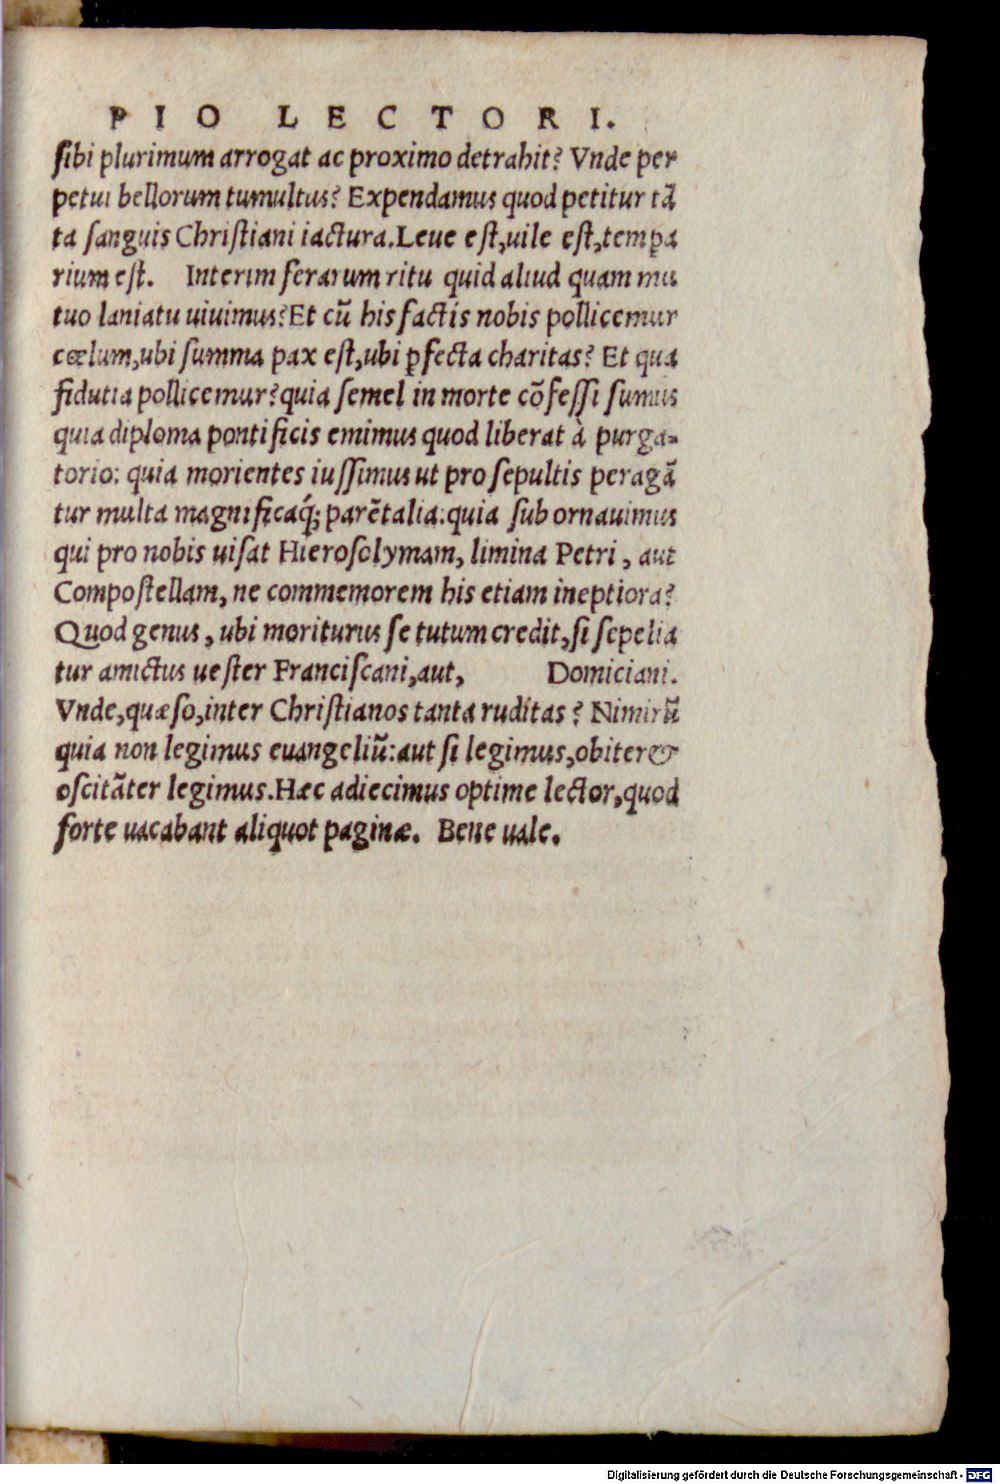 PIO LECTORI.
sibi plurimum arrogat ac proximo detrahit? Vnde per
petui bellorum tumultus? Expendamus quod petitur tā
ta sanguis Christiani iactura. Leue est, uile est, tempa
rium est. Interim ferarum ritu quid aliud quam mu
tuo laniatu uiuimus? Et cū his factis nobis pollicemur
cœlum, ubi summa pax est, ubi ꝑfecta charitas? Et qua
fidutia pollicemur? quia semel in morte cōfessi sumus
quia diploma pontificis emimus quod liberat à purga-
torio: quia morientes iussimus ut pro sepultis peragā
tur multa magnificaq́; parētalia. quia sub ornauimus
qui pro nobis uisat Hierosolymam, limina Petri, aut
Compostellam, ne commemorem his etiam ineptiora?
Quod genus, ubi moriturus se tutum credit, si sepelia
tur amictus uester Franciscani, aut, Domiciani.
Vnde, quæso, inter Christianos tanta ruditas? Nimirū
quia non legimus euangeliū: aut si legimus, obiter &
oscitāter legimus. Hæc adiecimus optime lector, quod
forte uacabant aliquot paginæ. Bene uale.
Digitalisierung gefördert durch die Deutsche Forschungsgemeinschaft - DFG